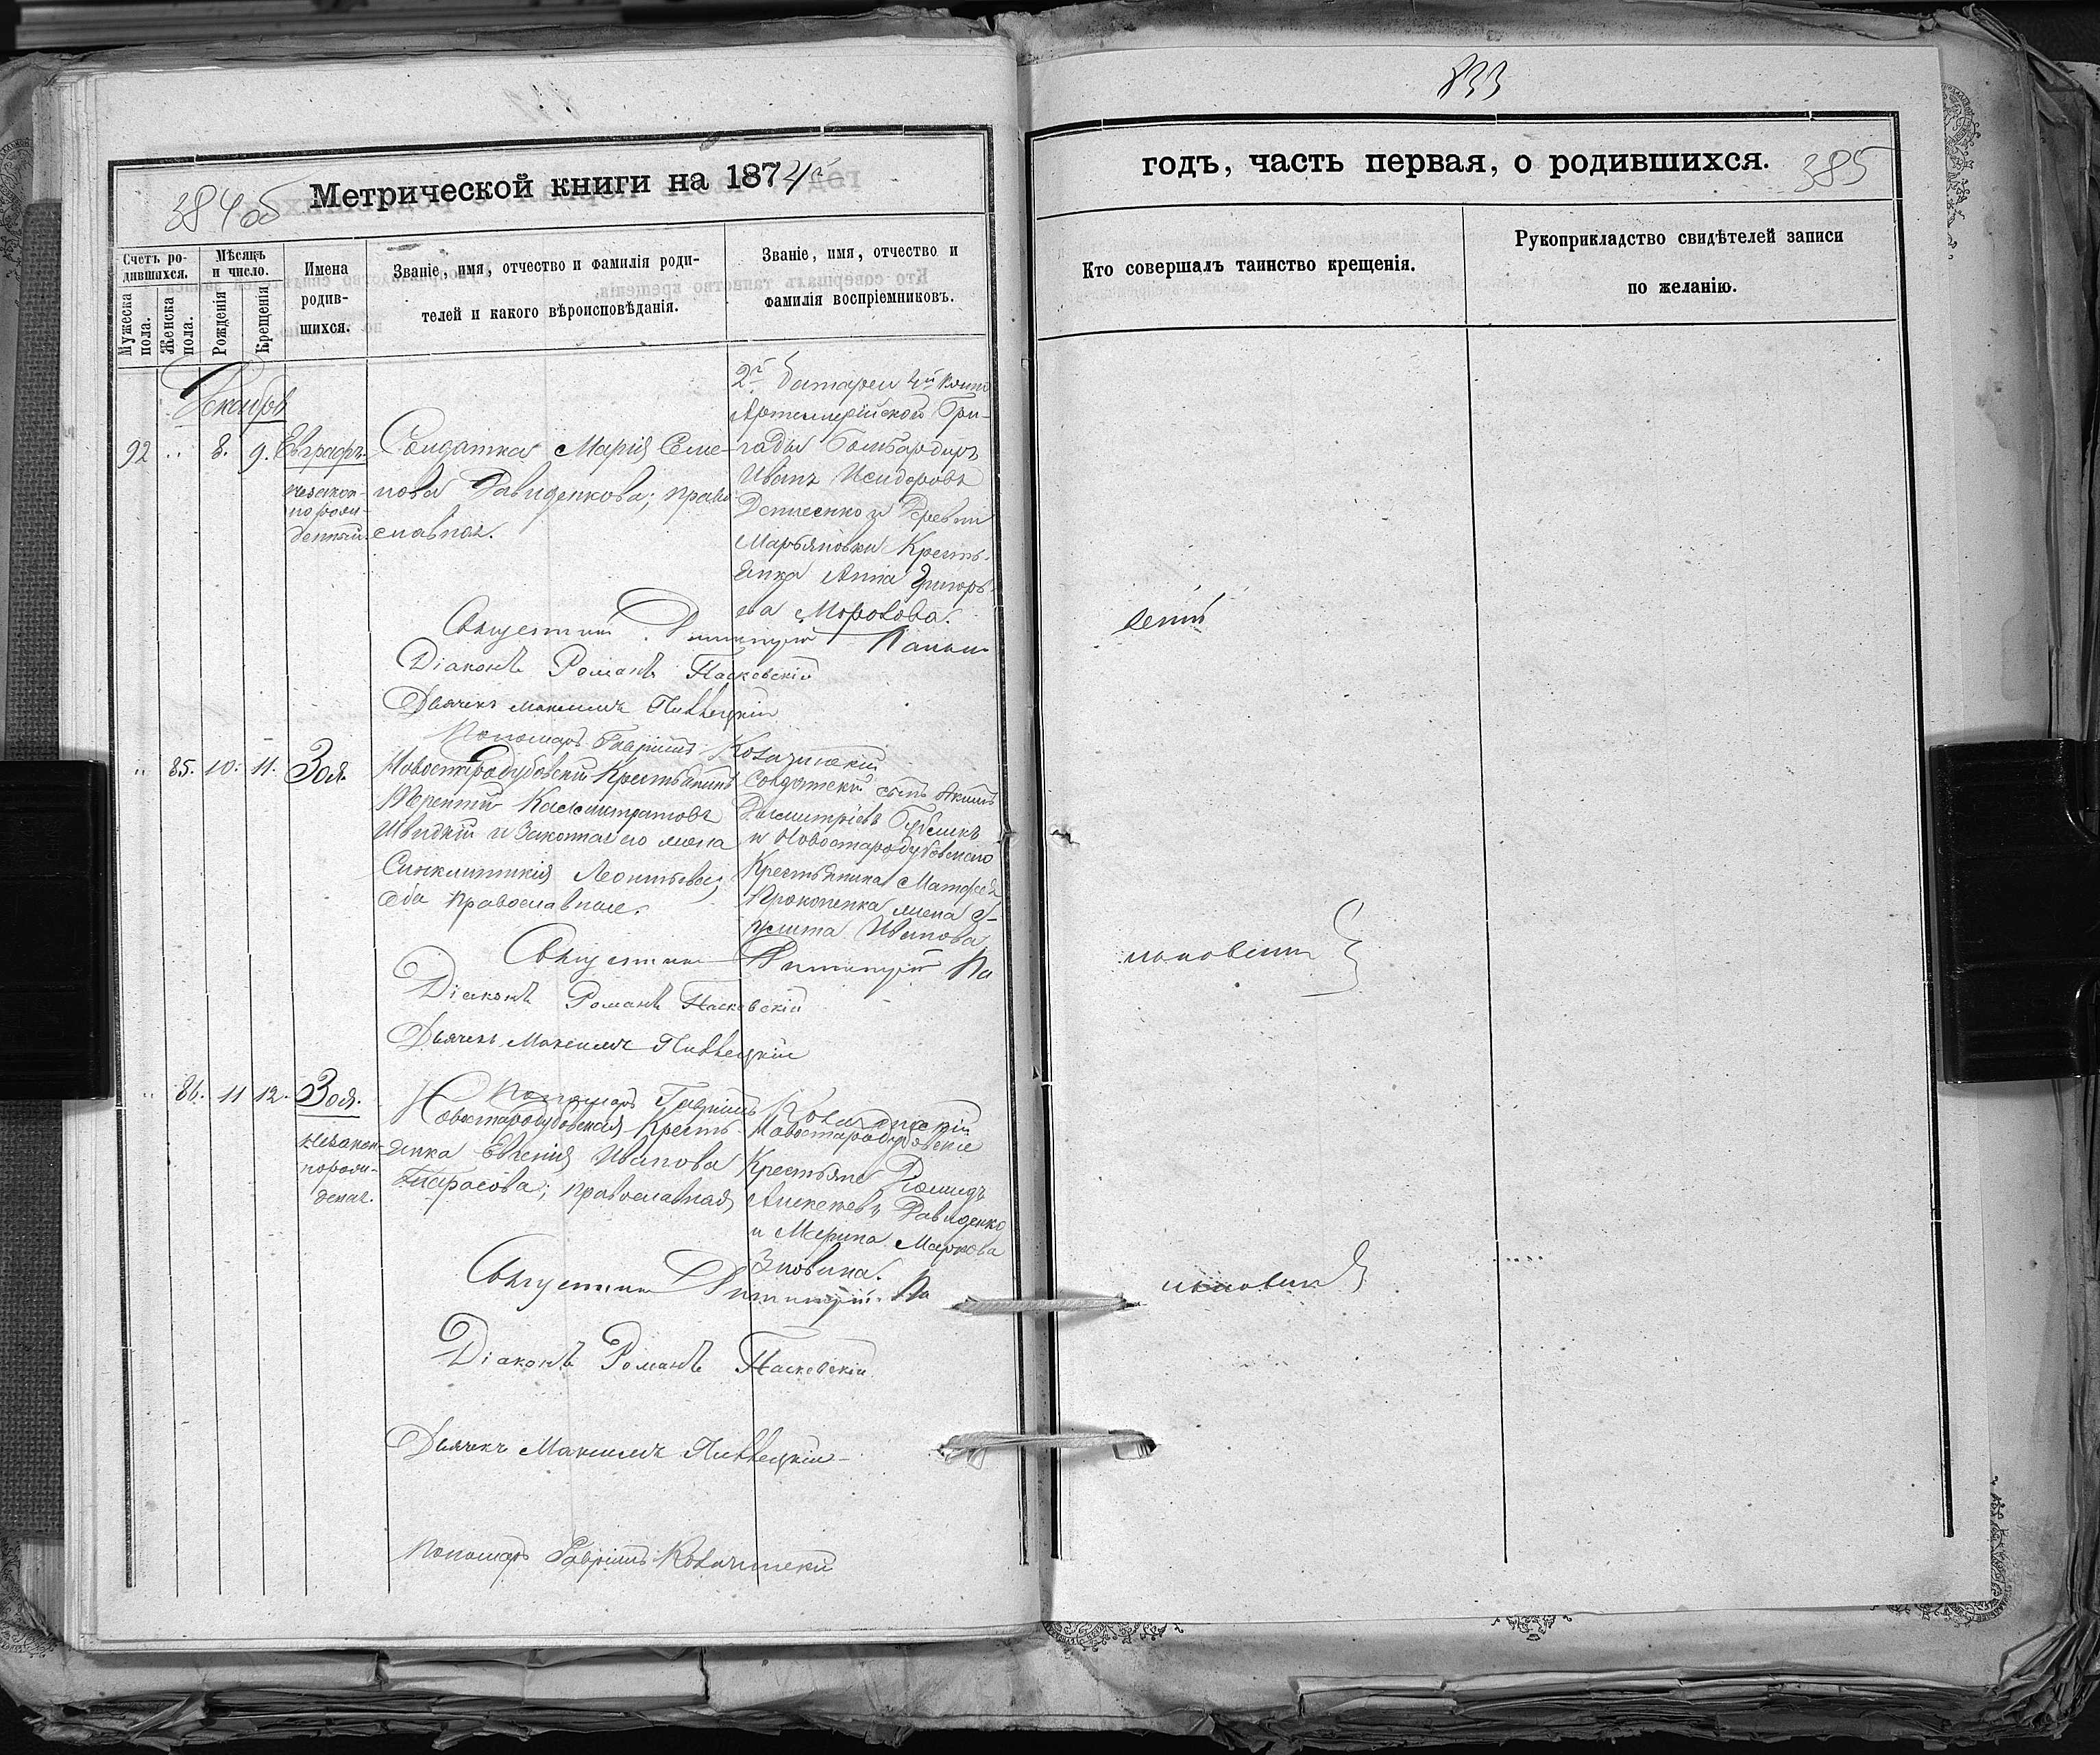 833
384 об
Метрической книги на 1874й
годъ, часть первая, о родившихся.
385
Счетъ родившихся.
Мужеска пола.
Женска пола.
Мѣсяцъ и число.
Рожденія
Крещенія
Имена родившихся.
Званіе, имя, отчество и фамилія родителей и какого вѣроисповѣданія.
Званіе, имя, отчество и фамилія воспріемниковъ.
Кто совершалъ таинство крещенія.
Рукоприкладство свидѣтелей записи
по желанію.
Декабрь
92 .. 8. 9. Евграфъ.
незакон-
но рож-
денный
Солдатка Марія Семе-
нова Давиденкова; право
славная.
2й батареи 4й
Артиллерійской Бри-
гады Бомбардиръ
Иванъ Исидоровъ
Денисенко и Деревни
Марьяновки Кресть-
янка Анна Григорь-
ева Морозова.
Священник Димитрий
Діаконъ Романъ Пасковскій
Дьячекъ Максимъ Пивлецкій
Пономарь Гавріилъ
" 85. 10. 11. Зоя
Новостародубовскій Крестьянинъ
Терентій Каллистратовъ
Швидкій и законная его жена
Синклитикія Леонтьева;
оба православные.
Солдатскій сынъ Акимъ
Димитріевъ Бублик
и Новостародубовского
Крестьянина Матфея
Прокопенка жена
Иванова
Священник Димитрий По
Діаконъ Романъ Пасковскій
Дьячекъ Максимъ Пивлецкій
Пономарь Гавріилъ
" 86. 11 12. Зоя.
незакон-
норож-
деная.
Новостародубовская Кресть-
янка Евгенія Иванова
Тарасова; православная
Новостародубовскіе
Крестьяне
Алексеевъ Давиденко
и Марина Маркова
Зновина.
Священник Димитрий По
Діаконъ Романъ Пасковскій
Дьячекъ Максимъ Пивлецкій
Пономарь Гавріилъ